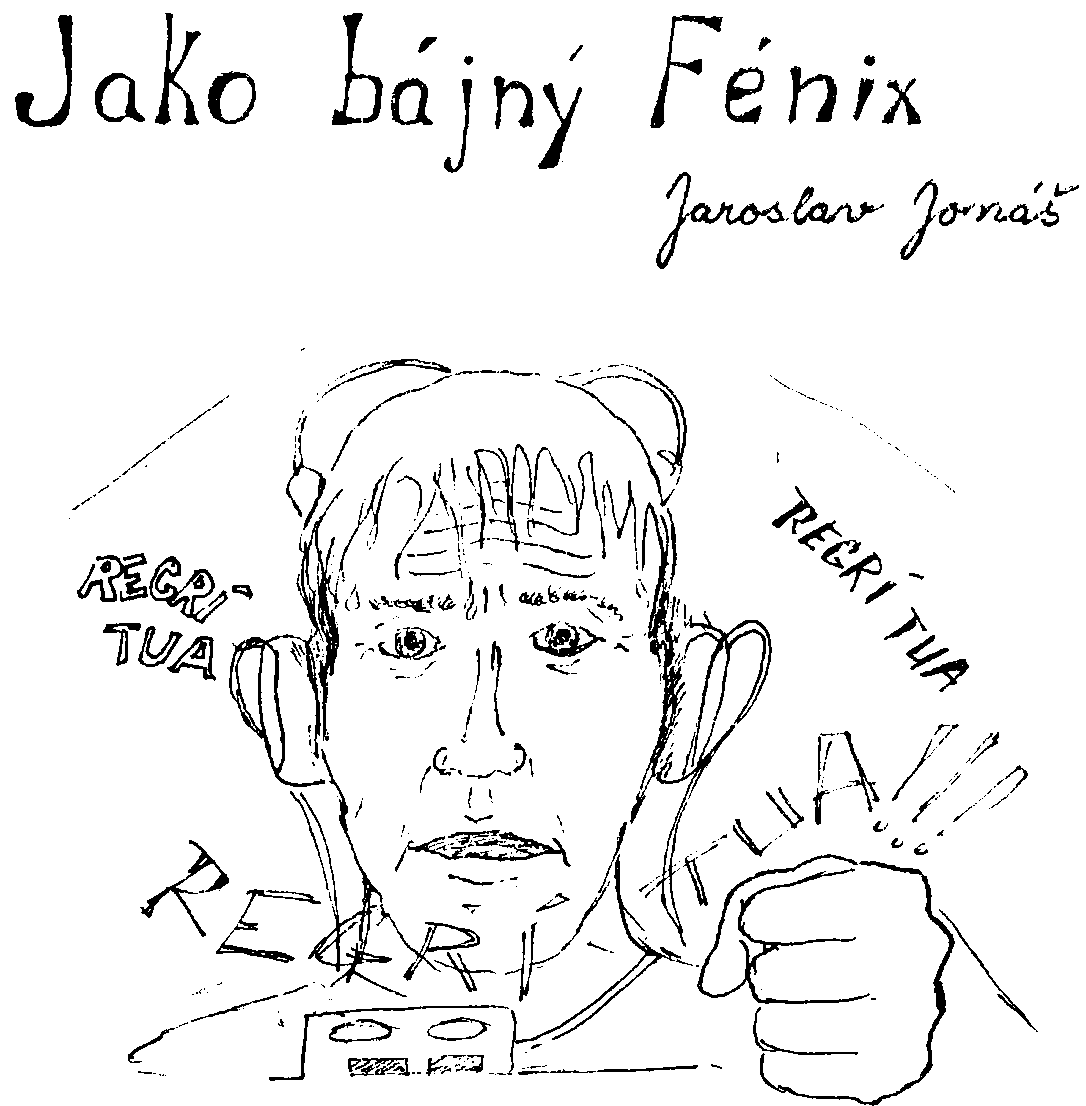 Jako bájný Fénix
Jaroslav Jonáš
REGRÍ
TUA
REGRÍ TUA
REGRÍ TUA!!!